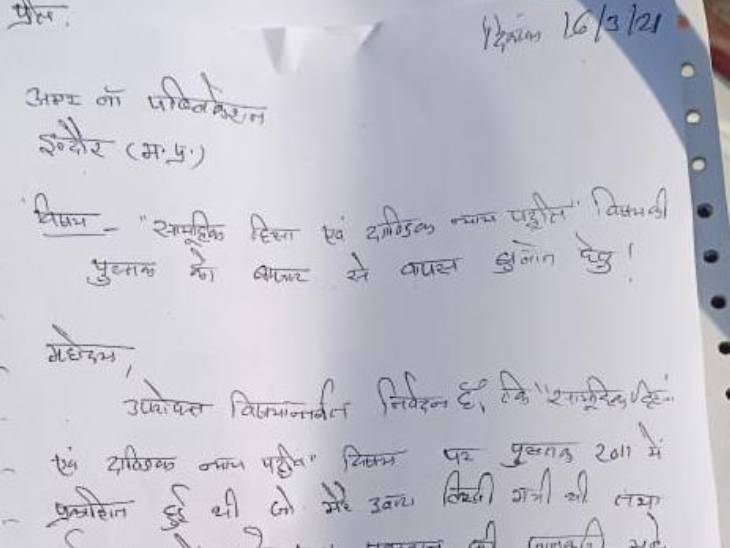 प्रति,
दिनांक 16/3/21
अमर लॉ पब्लिकेशन
इन्दौर (म.प्र.)
विषय - "सामूहिक हिंसा एवं दाण्डिक न्याय पद्धति" विषय की
पुस्तक को बाजार से वापस बुलाने हेतु!
महोदय,
उपरोक्त विषयान्तर्गत निवेदन है, कि "सामूहिक हिंसा
एवं दाण्डिक न्याय पद्धति" विषय पर पुस्तक 2011 में
प्रकाशित हुई थी जो मेरे द्वारा लिखी गयी थी तथा
की जानकारी मुझे